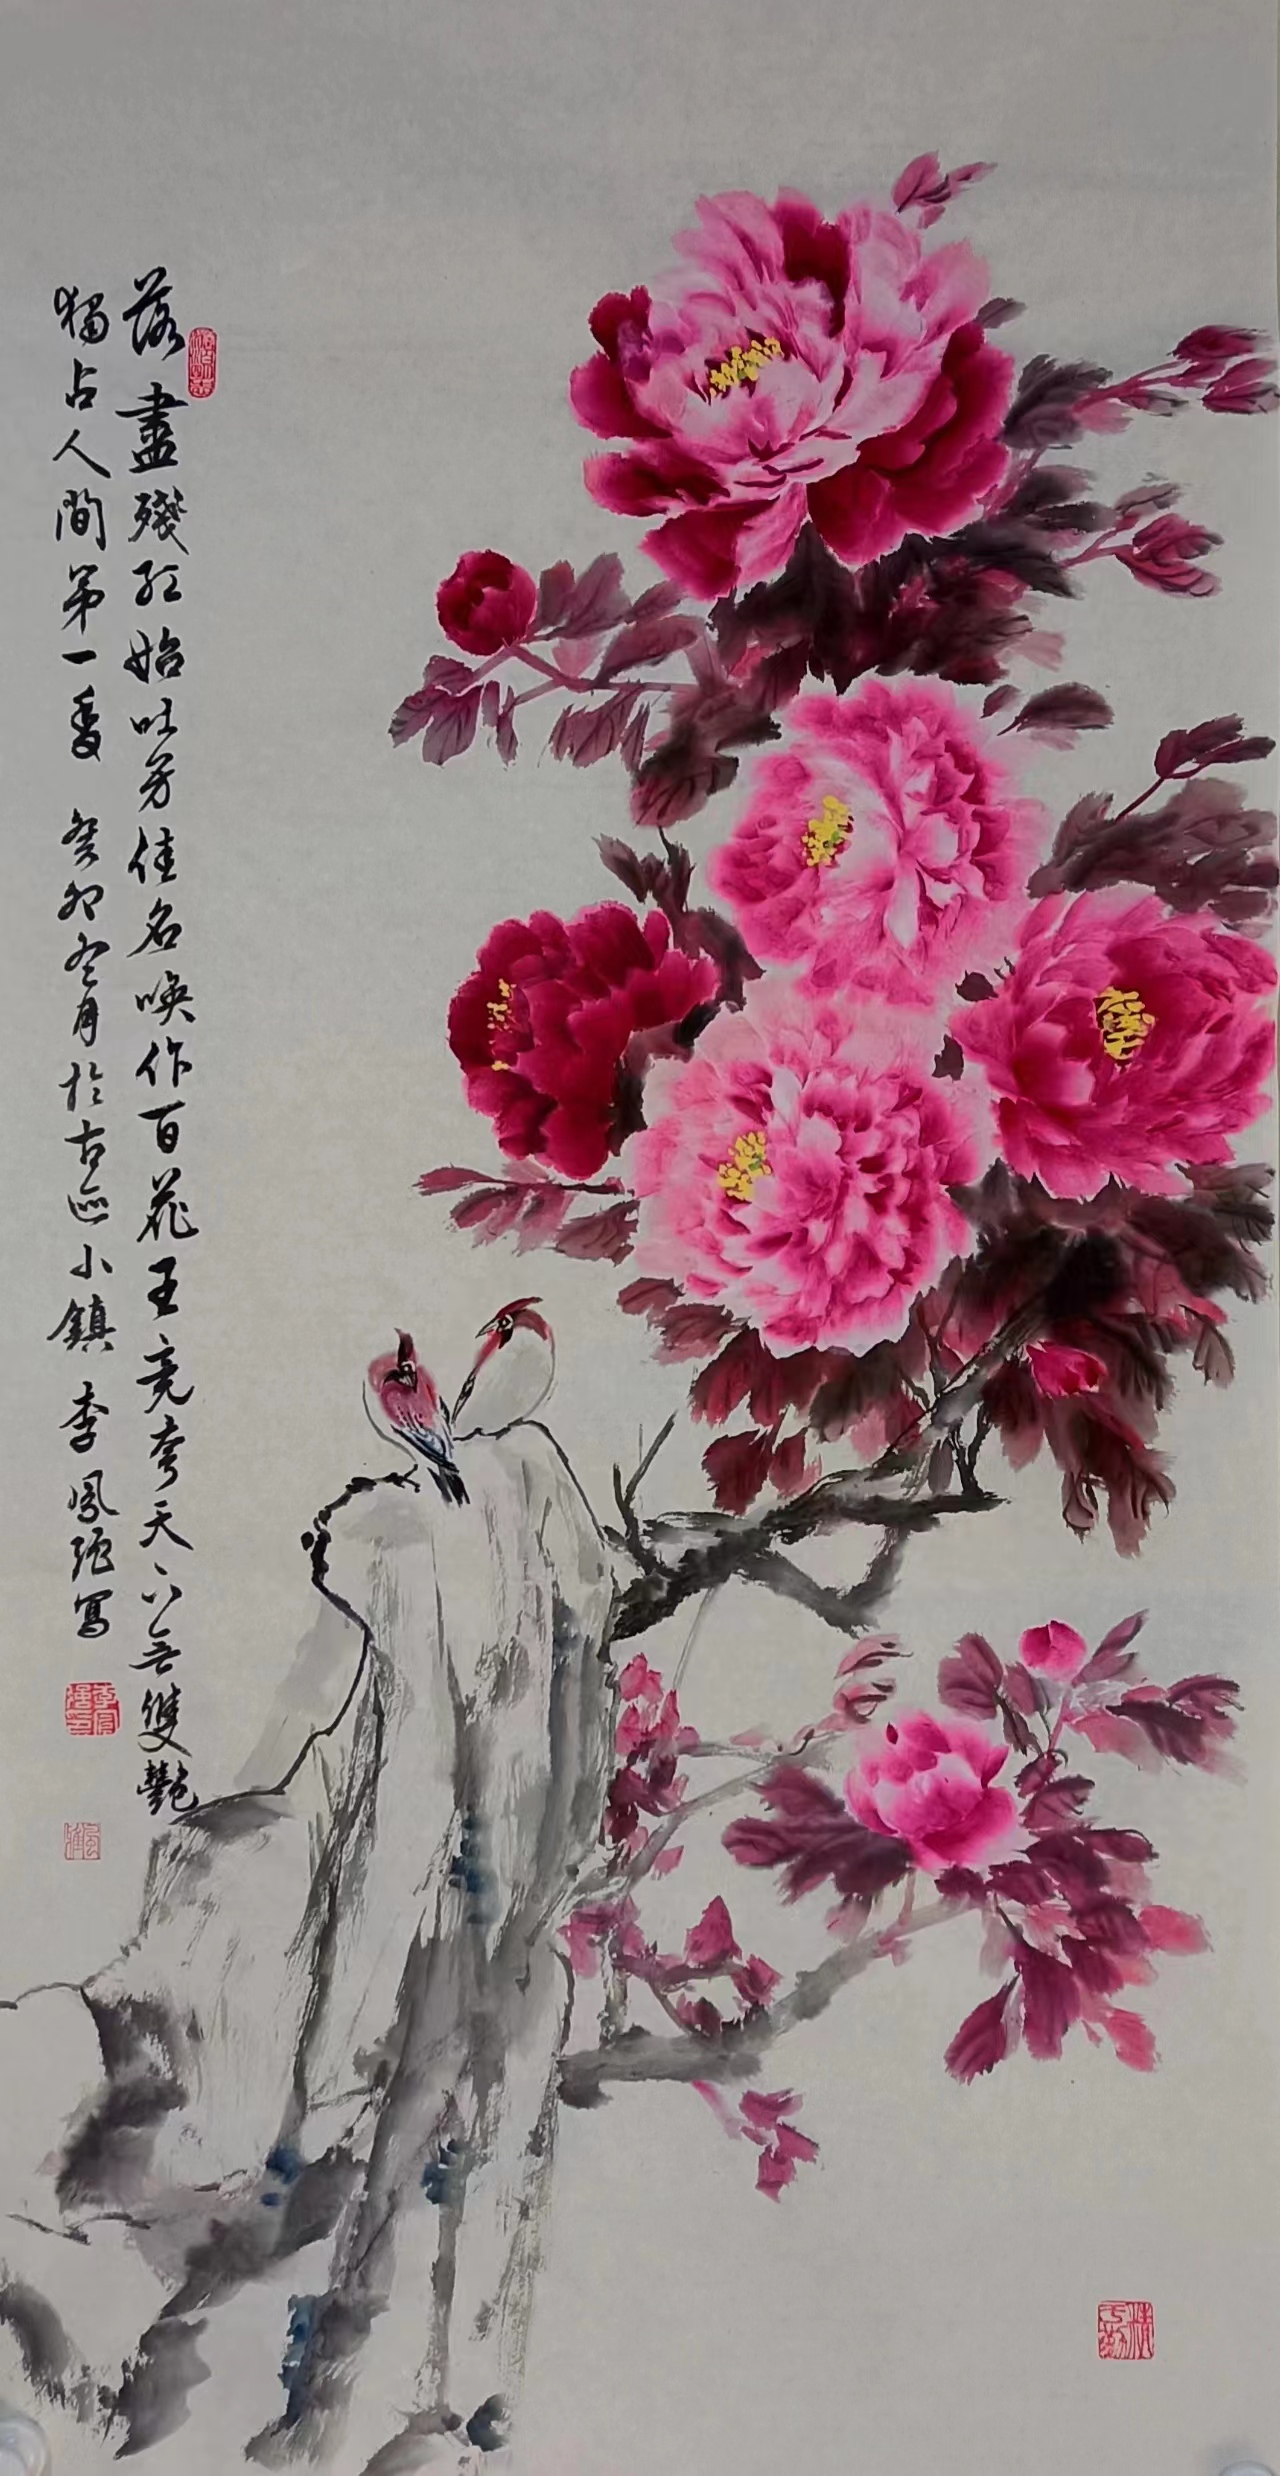 落盡殘紅始吐芳佳名喚作百花王竞夸天下无雙艷
獨占人間第一香 癸卯冬月於古巡小鎮 李鳳强寫